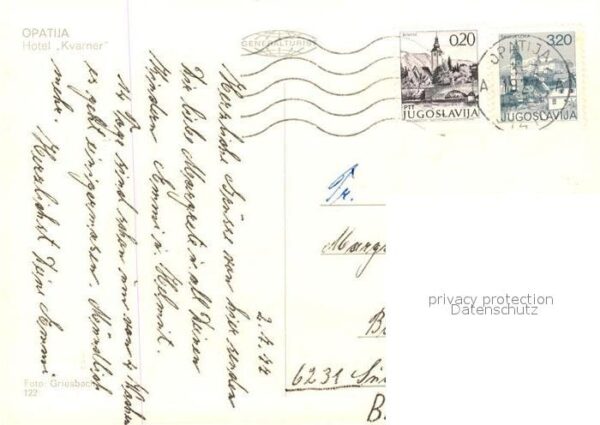 OPATIJA
Hotel „Kvarner"
GENERALTURIST
0,20
PTT
JUGOSLAVIJA
OPATIJA
3,20
JUGOSLAVIJA
2. 4. 77
Herzliche Grüsse von hier senden
Dir liebe Margret u. all Deinen
Kindern Emmi u. Helmut.
14 Tage sind schon um von 4 Wochen
es geht einigermassen. Mündlich
mehr. Herzlichst Dein Emmi
Fr.
Marg
B
6231
B
privacy protection
Datenschutz
Foto: Griesbach
122